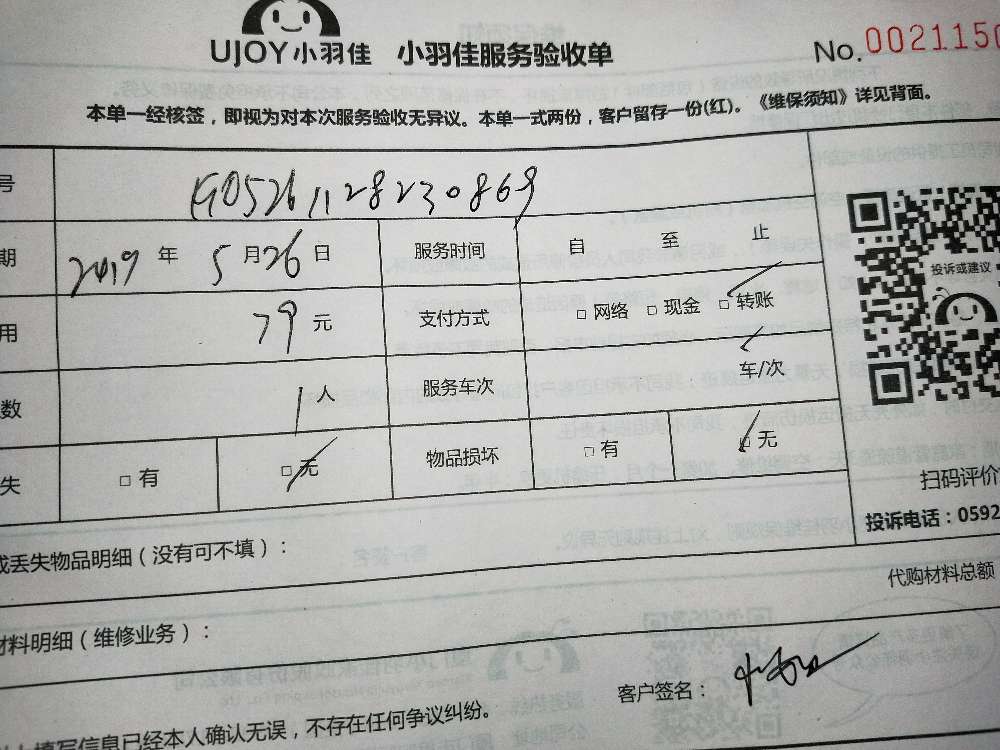 UJOY小羽佳 小羽佳服务验收单 No. 0021150
本单一经核签，即视为对本次服务验收无异议。本单一式两份，客户留存一份(红)。《维保须知》详见背面。
号 1905261128230869
期 2019 年 5 月 26 日 服务时间 自 至 止
用 79 元 支付方式 □网络 □现金 □转账
数 1 人 服务车次 车/次
失 □有 □无 物品损坏 □有 □无
投诉或建议
扫码评价
投诉电话：0592
或丢失物品明细（没有可不填）：
代购材料总额
材料明细（维修业务）：
客户签名：
以上填写信息已经本人确认无误，不存在任何争议纠纷。